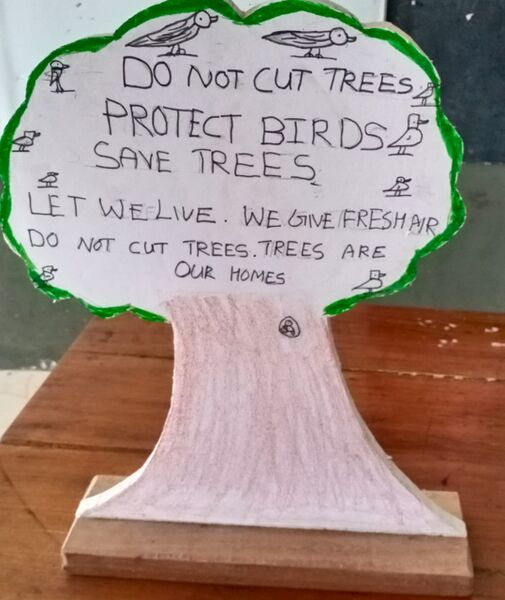 DO NOT CUT TREES
PROTECT BIRDS
SAVE TREES
LET WE LIVE. WE GIVE FRESH AIR
DO NOT CUT TREES. TREES ARE
OUR HOMES